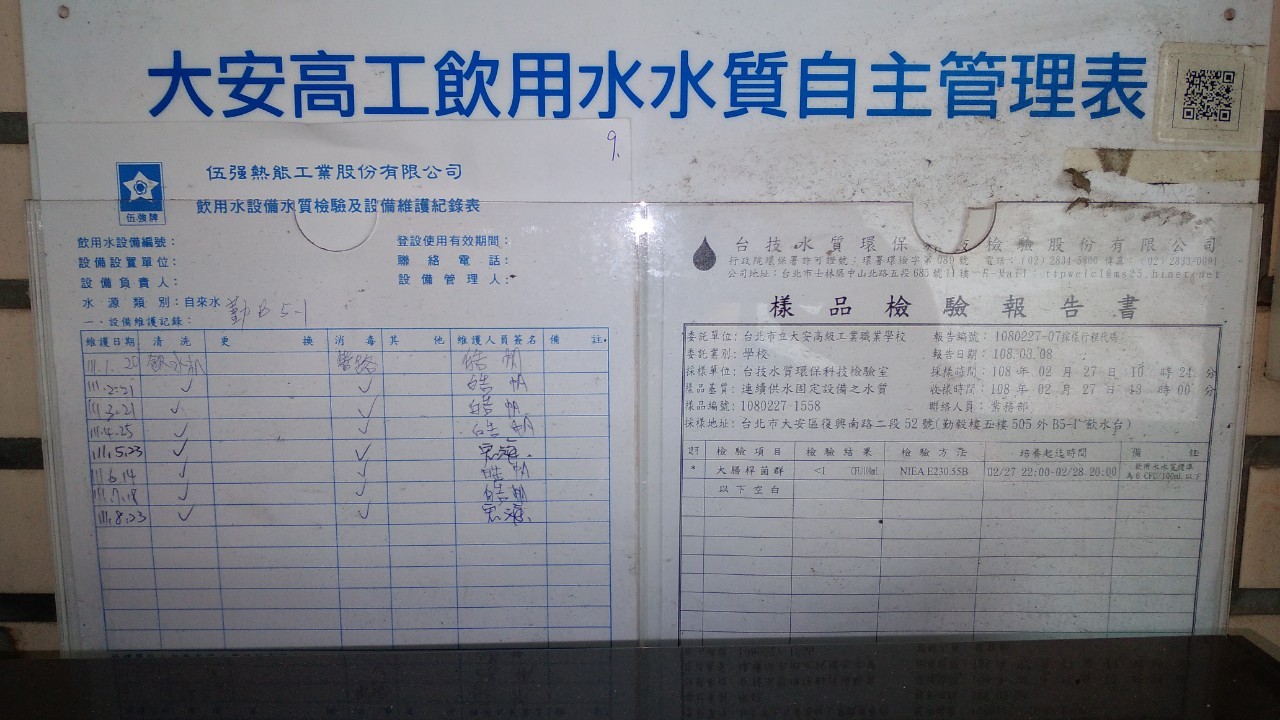 大安高工飲用水水質自主管理表
9.
伍强熱能工業股份有限公司
伍強牌
飲用水設備水質檢驗及設備維護紀錄表
飲用水設備編號：
登設使用有效期間：
設備設置單位：
聯絡電話：
設備負責人：
設備管理人：
水源類別：自來水
勤B5-1
一、設備維護記錄：
維護日期 清洗 更換 消毒 其他 維護人員簽名 備註
111.1.20 飲水機 管路
111.2.21 ✓ ✓
111.3.21 ✓ ✓
111.4.25 ✓ ✓
111.5.23 ✓ ✓
111.6.14 ✓ ✓
111.7.18 ✓ ✓
111.8.23 ✓ ✓
台技水質環保科技檢驗股份有限公司
行政院環保署許可證號：環署環檢字第089號 電話：(02)2834-5800 傳真：(02)2833-0891
公司地址：台北市士林區中山北路五段685號11樓 E-Mail：
樣品檢驗報告書
委託單位：台北市立大安高級工業職業學校 報告編號：1080227-07採樣行程代碼：
委託業別：學校 報告日期：108.03.08
採樣單位：台技水質環保科技檢驗室 採樣時間：108年02月27日10時24分
樣品基質：連續供水固定設備之水質 收樣時間：108年02月27日13時00分
樣品編號：1080227-1558 聯絡人員：業務部
採樣地址：台北市大安區復興南路二段52號(勤毅樓五樓505外B5-1飲水台)
檢驗項目 檢驗結果 檢驗方法 培養起迄時間 備註
* 大腸桿菌群 <1 NIEA E230.55B 02/27 22:00-02/28.20:00 飲用水水質標準
為6 CFU/100mL以下
以下空白